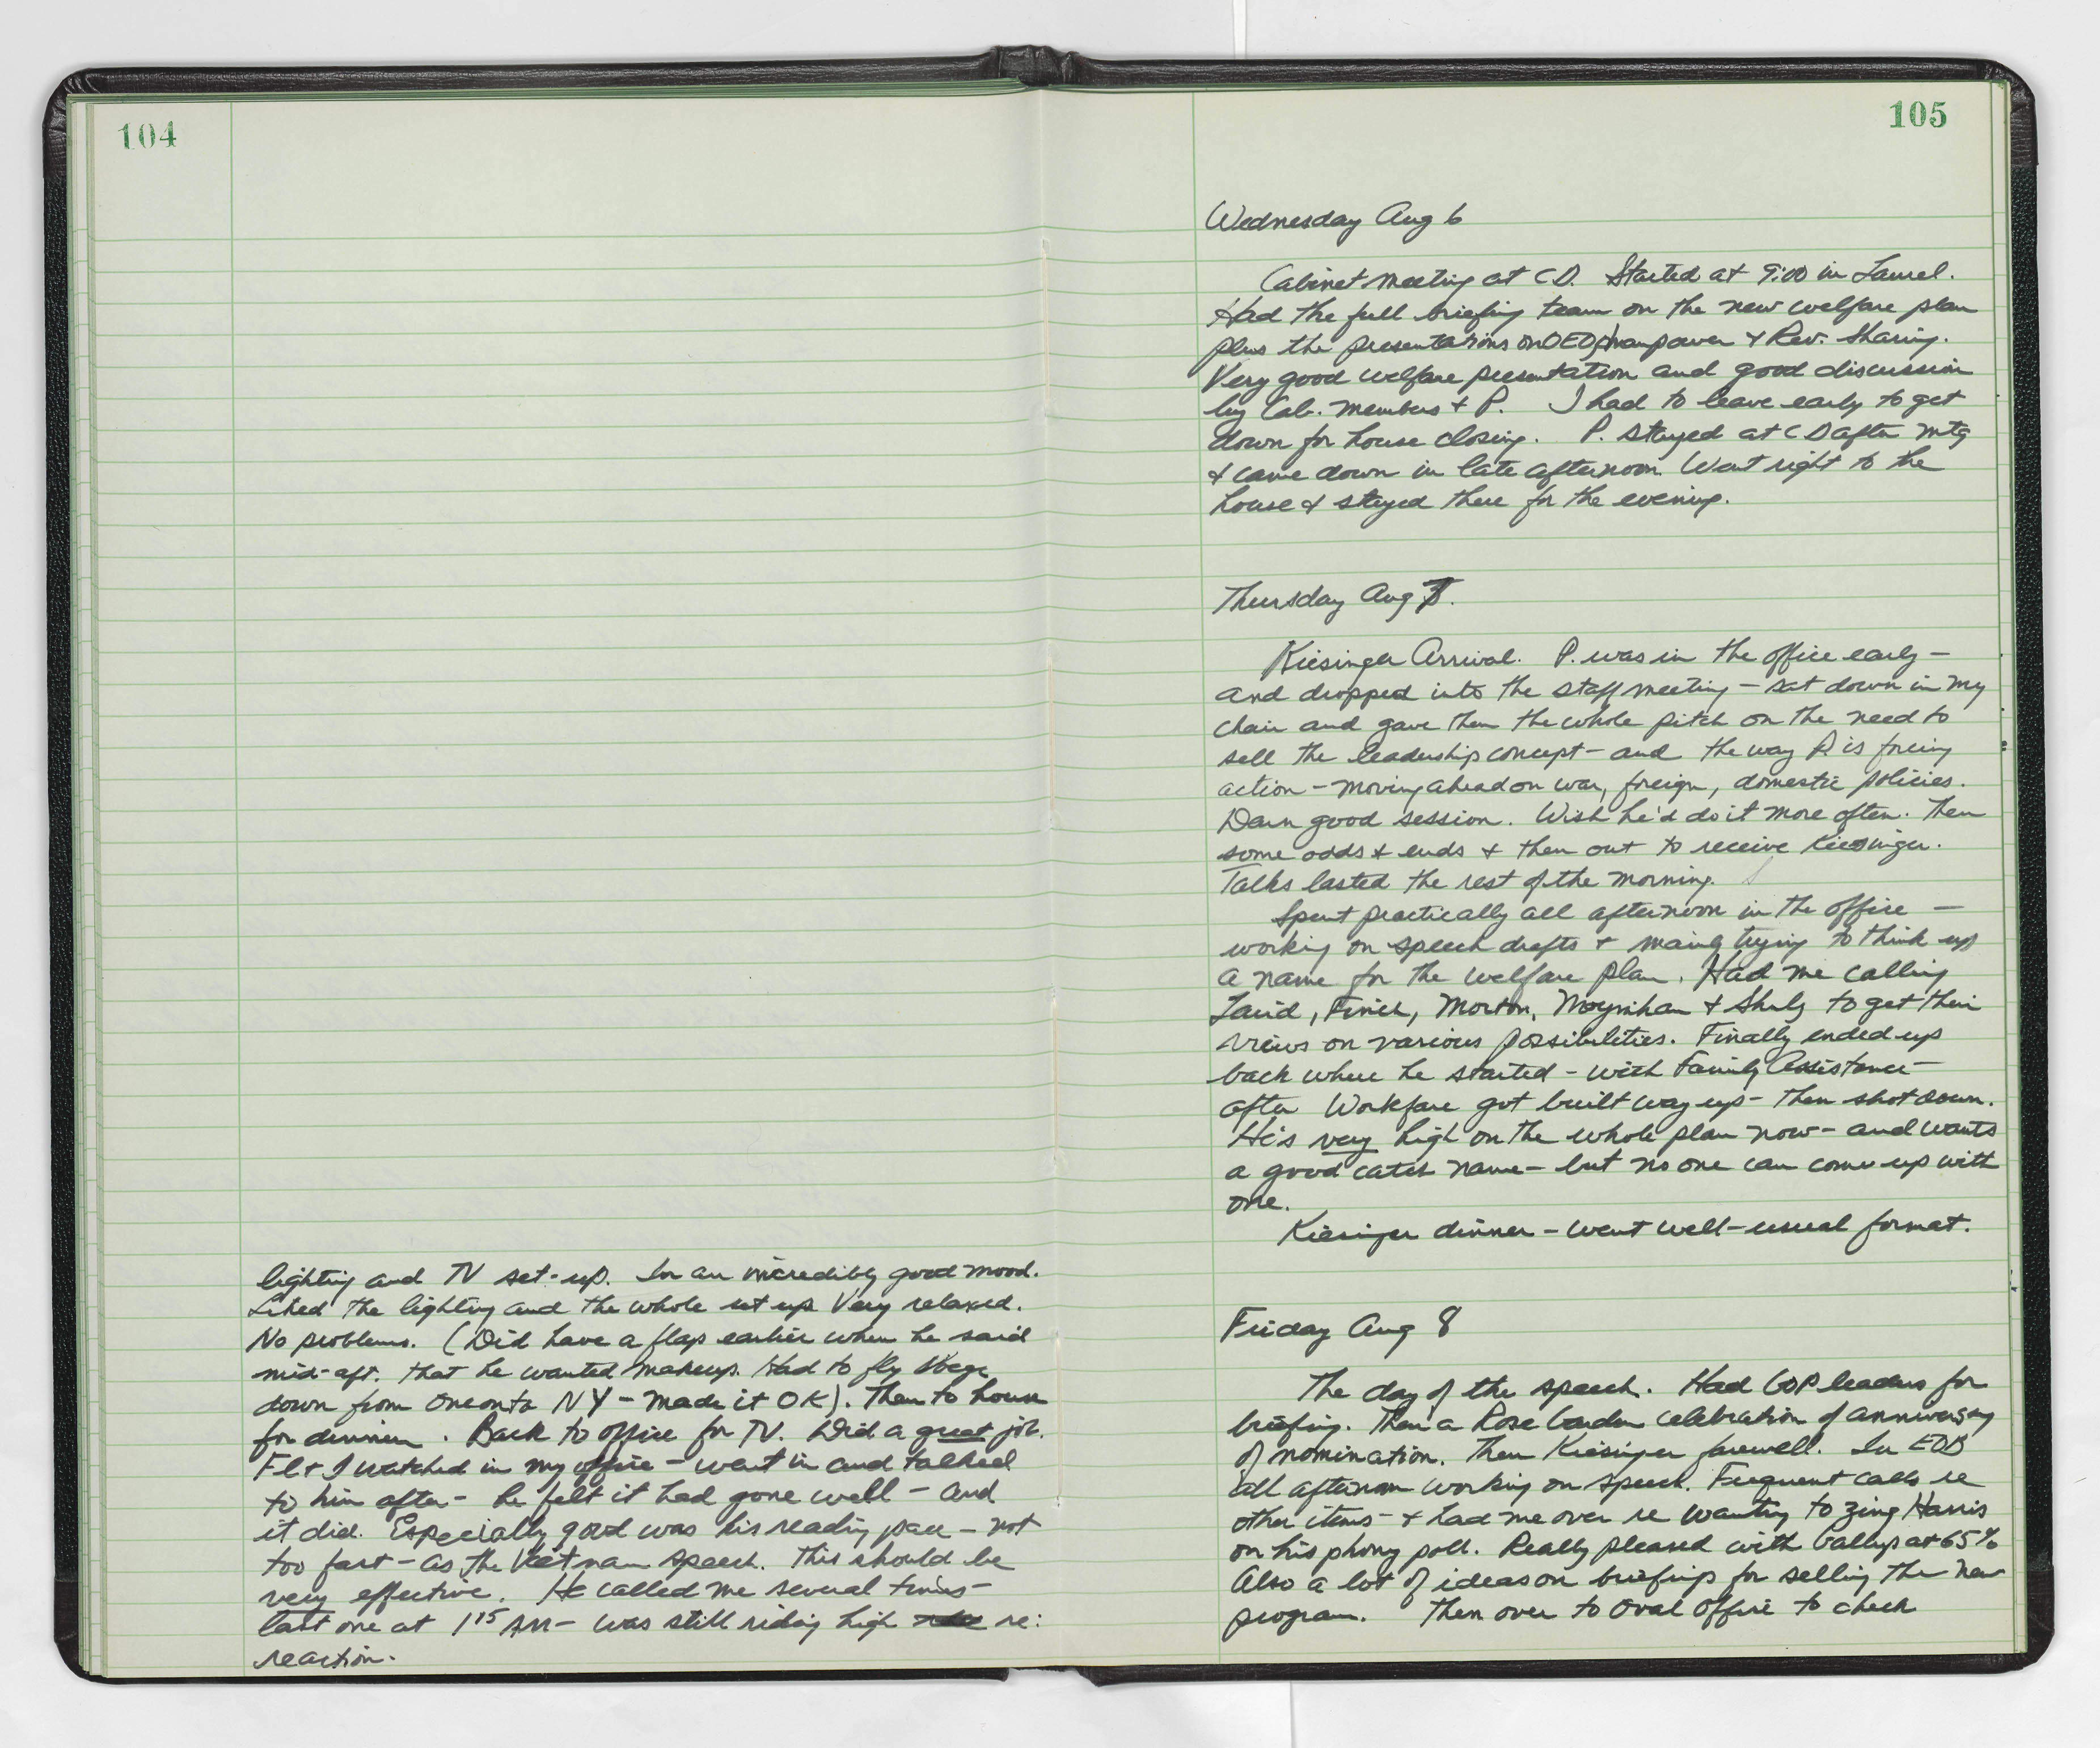 104
lighting and TV set-up. In an incredibly good mood.
Liked the lighting and the whole set up. Very relaxed.
No problems. (Did have a flap earlier when he said
mid-aft. that he wanted makeup. Had to fly Voege
down from Oneonta NY - made it OK). Then to house
for dinner. Back to office for TV. Did a great job.
E & I watched in my office - went in and talked
to him after - he felt it had gone well - and
it did. Especially good was his reading pace - not
too fast - as the Vietnam speech. This should be
very effective. He called me several times -
last one at 1 15 AM - was still riding high re:
reaction.
105
Wednesday Aug 6
Cabinet meeting at CD. Started at 9:00 in Laurel.
Had the full briefing team on the new welfare plan
plus the presentations on OEO, manpower & Rev. Sharing.
Very good welfare presentation and good discussion
by Cab. members & P. I had to leave early to get
down for house closing. P. stayed at CD after mtg
& came down in late afternoon. Went right to the
house & stayed there for the evening.
Thursday Aug 7.
Kiesinger Arrival. P. was in the office early -
and dropped into the staff meeting - sat down in my
chair and gave them the whole pitch on the need to
sell the leadership concept - and the way P. is forcing
action - moving ahead on war, foreign, domestic policies.
Darn good session. Wish he'd do it more often. Then
some odds & ends & then out to receive Kiesinger.
Talks lasted the rest of the morning.
Spent practically all afternoon in the office -
working on speech drafts & mainly trying to think up
a name for the welfare plan. Had me calling
Laird, Finch, Morton, Moynihan & Shulz to get their
views on various possibilities. Finally ended up
back where he started - with Family Assistance -
after Workfare got built way up - then shot down.
He's very high on the whole plan now - and wants
a good catch name - but no one can come up with
one.
Kiesinger dinner - went well - usual format.
Friday Aug 8
The day of the speech. Had GOP leaders for
briefing. Then a Rose Garden celebration of anniversary
of nomination. Then Kiesinger farewell. In EOB
all afternoon working on speech. Frequent calls re
other items - & had me over re wanting to zing Harris
on his phony poll. Really pleased with Gallup at 65%
Also a lot of ideas on briefings for selling the new
program. Then over to Oval Office to check